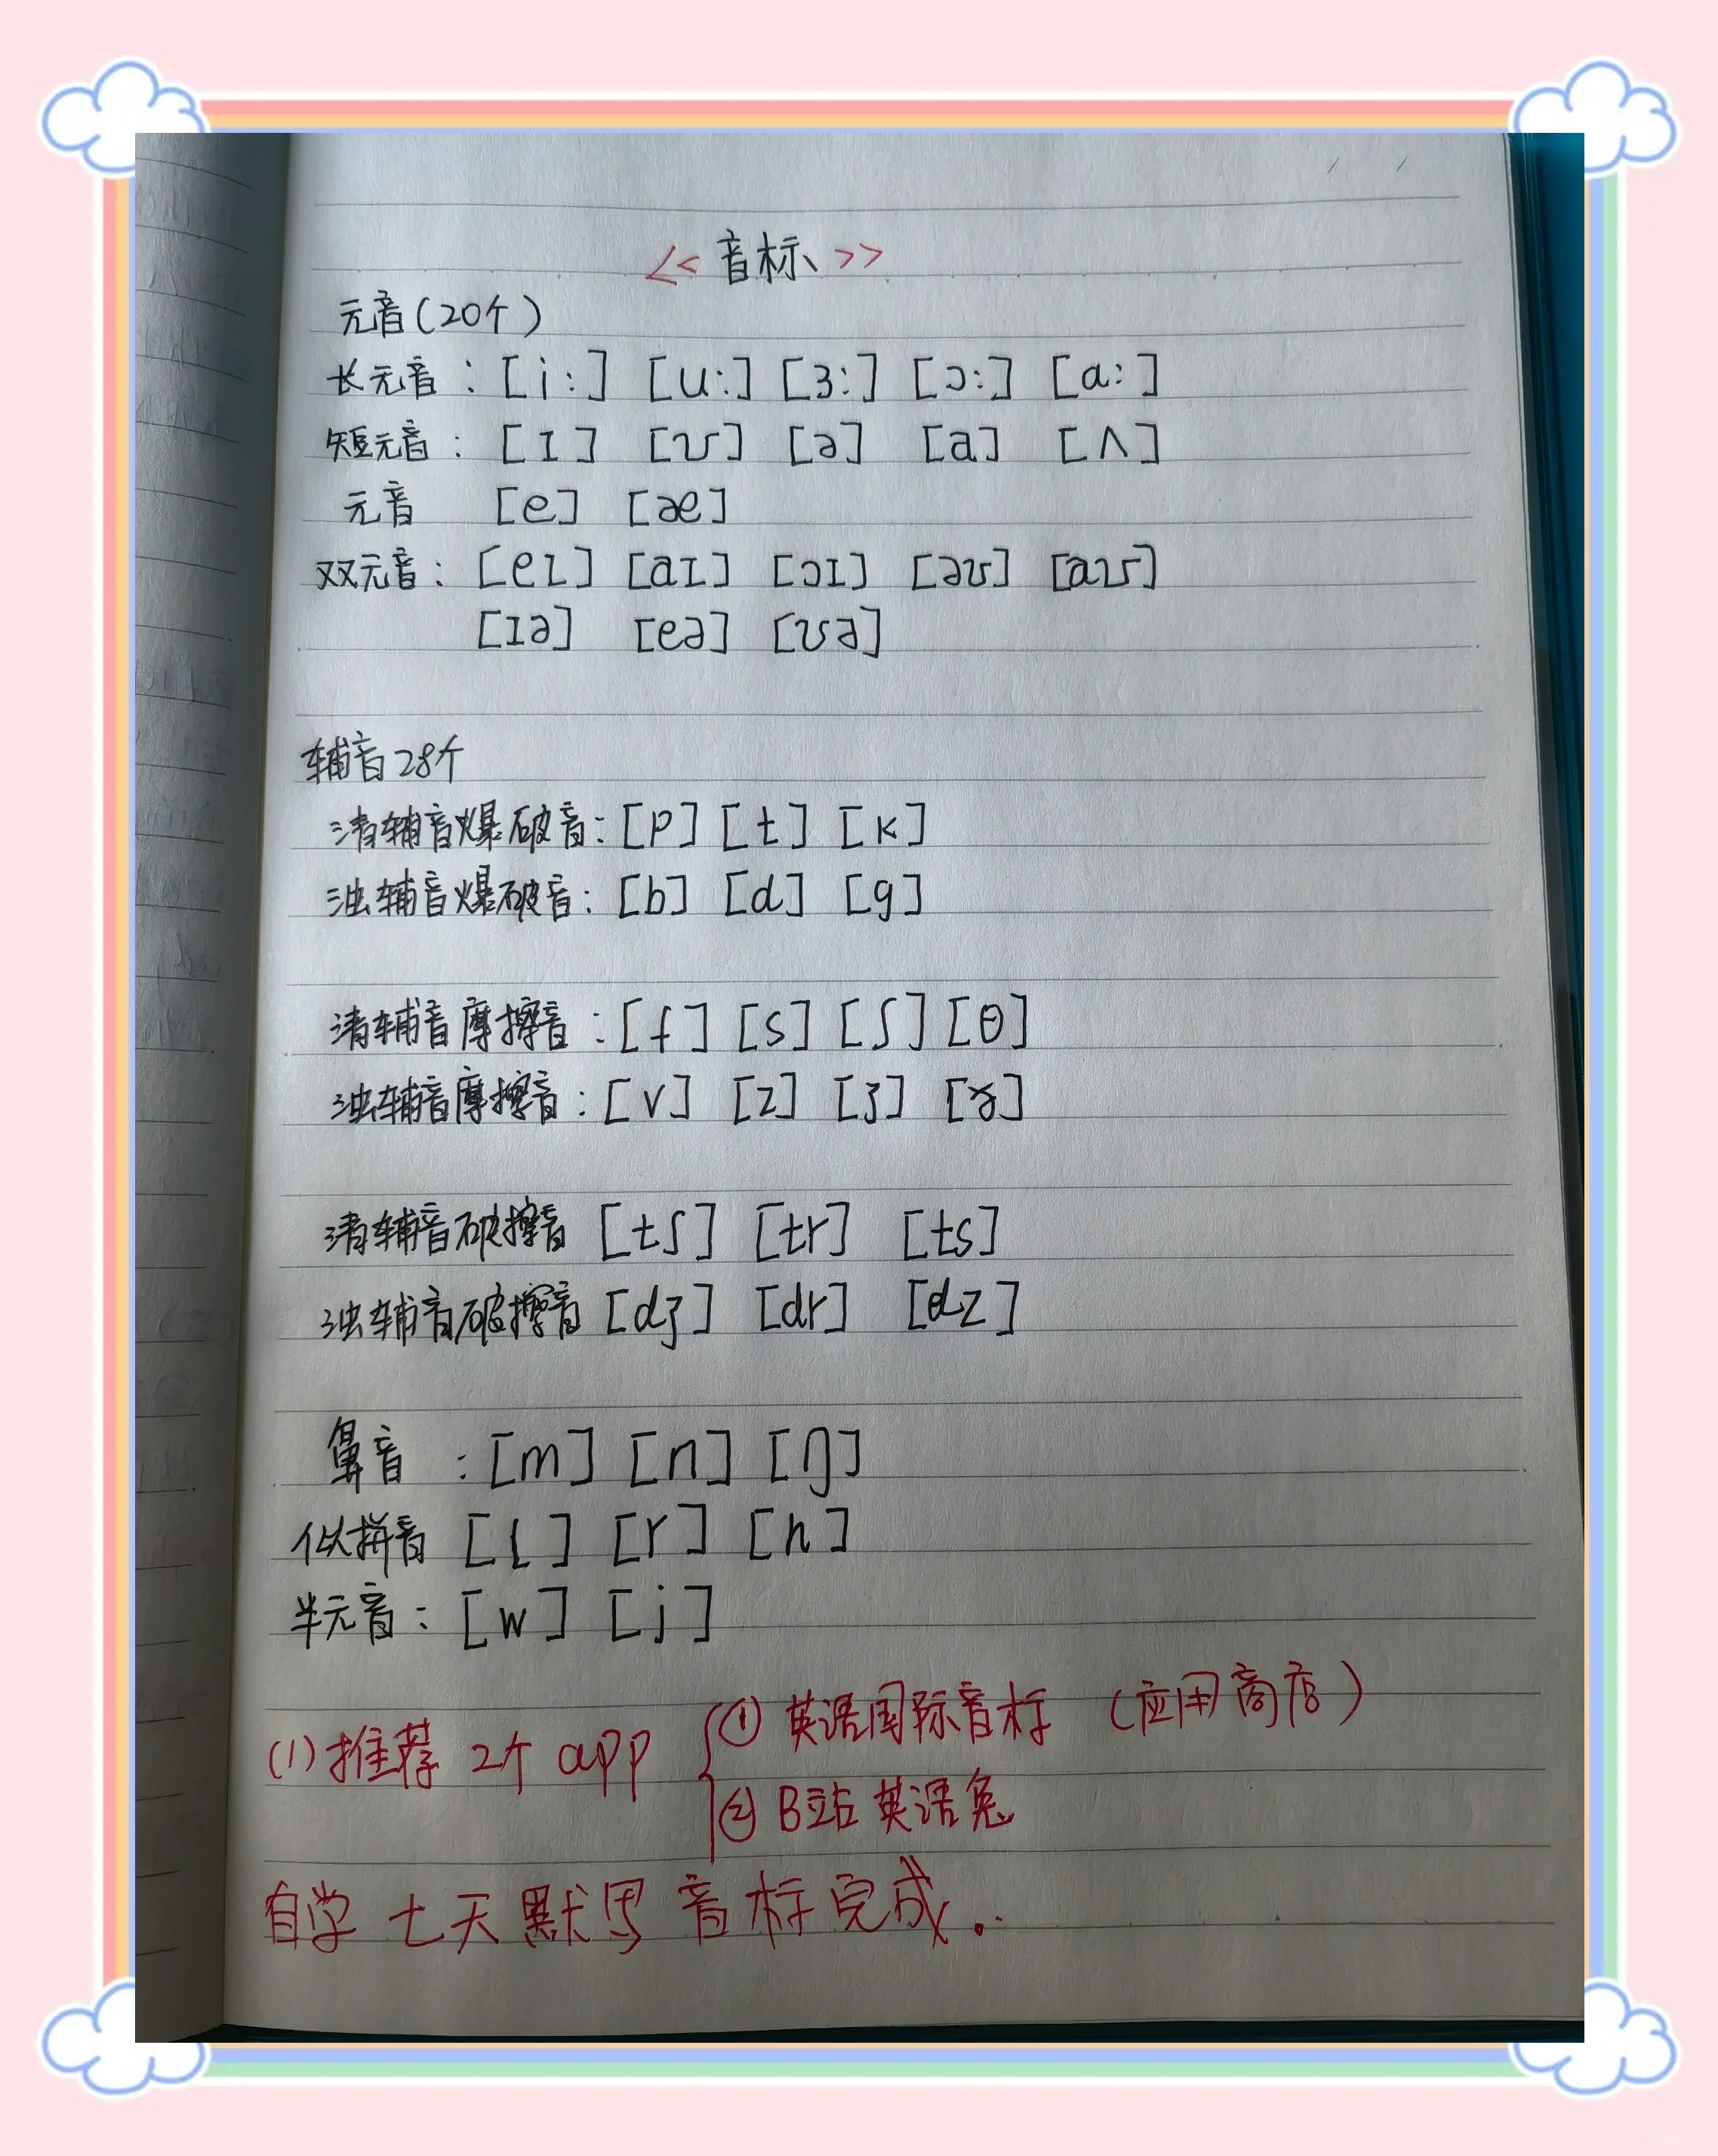 << 音标 >>
元音(20个)
长元音：[i:] [u:] [ɜ:] [ɔ:] [a:]
短元音：[ɪ] [ʊ] [ə] [a] [ʌ]
元音 [e] [æ]
双元音：[eɪ] [aɪ] [ɔɪ] [əʊ] [aʊ]
[ɪə] [eə] [ʊə]
辅音28个
清辅音爆破音：[p] [t] [k]
浊辅音爆破音：[b] [d] [g]
清辅音摩擦音：[f] [s] [ʃ] [θ]
浊辅音摩擦音：[v] [z] [ʒ] [ɣ]
清辅音破擦音 [tʃ] [tr] [ts]
浊辅音破擦音 [dʒ] [dr] [dz]
鼻音：[m] [n] [ŋ]
似拼音 [l] [r] [h]
半元音：[w] [j]
(1)推荐 2个 app ① 英语国际音标 (应用商店)
② B站英语兔
自学七天默写音标完成。